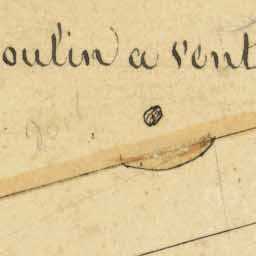 oulin a vent